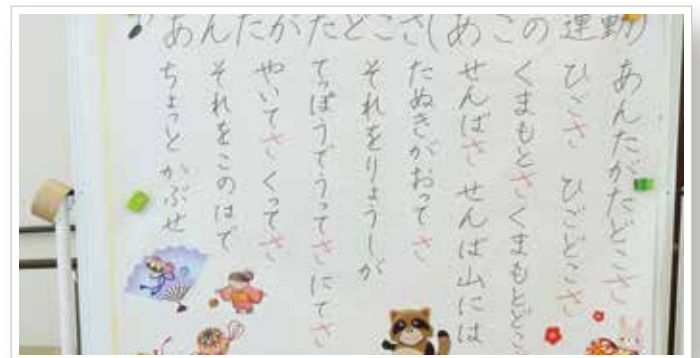 ♪あんたがたどこさ(あしこの運動)
あんたがたどこさ
ひごさ ひごどこさ
くまもとさ くまもとどこ
せんばさ せんば山には
たぬきがおってさ
それをりょうしが
てっぽうでうってさ にてさ
やいてさ くってさ
それをこのはで
ちょっと かぶせ